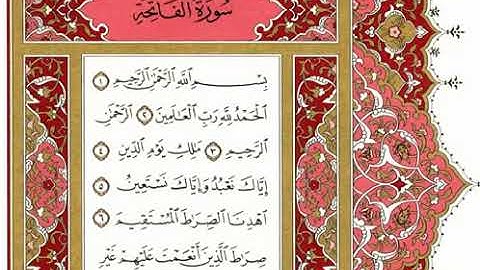 سُورَةُ الفَاتِحَةِ
بِسْمِ ٱللَّهِ ٱلرَّحْمَٰنِ ٱلرَّحِيمِ ١
ٱلْحَمْدُ لِلَّهِ رَبِّ ٱلْعَٰلَمِينَ ٢ ٱلرَّحْمَٰنِ
ٱلرَّحِيمِ ٣ مَٰلِكِ يَوْمِ ٱلدِّينِ ٤
إِيَّاكَ نَعْبُدُ وَإِيَّاكَ نَسْتَعِينُ ٥
ٱهْدِنَا ٱلصِّرَٰطَ ٱلْمُسْتَقِيمَ ٦
صِرَٰطَ ٱلَّذِينَ أَنْعَمْتَ عَلَيْهِمْ غَيْرِ